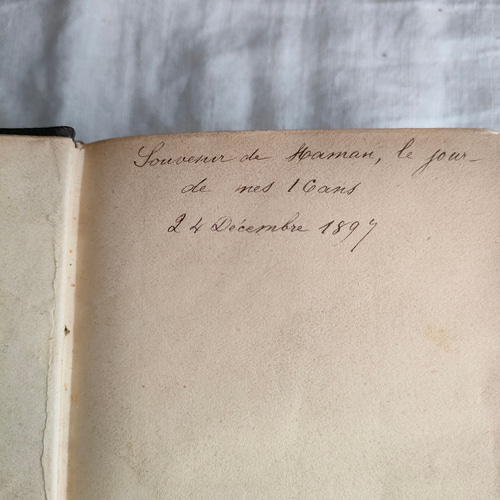 Souvenir de Maman, le jour-
de mes 16 ans
24 Décembre 1897